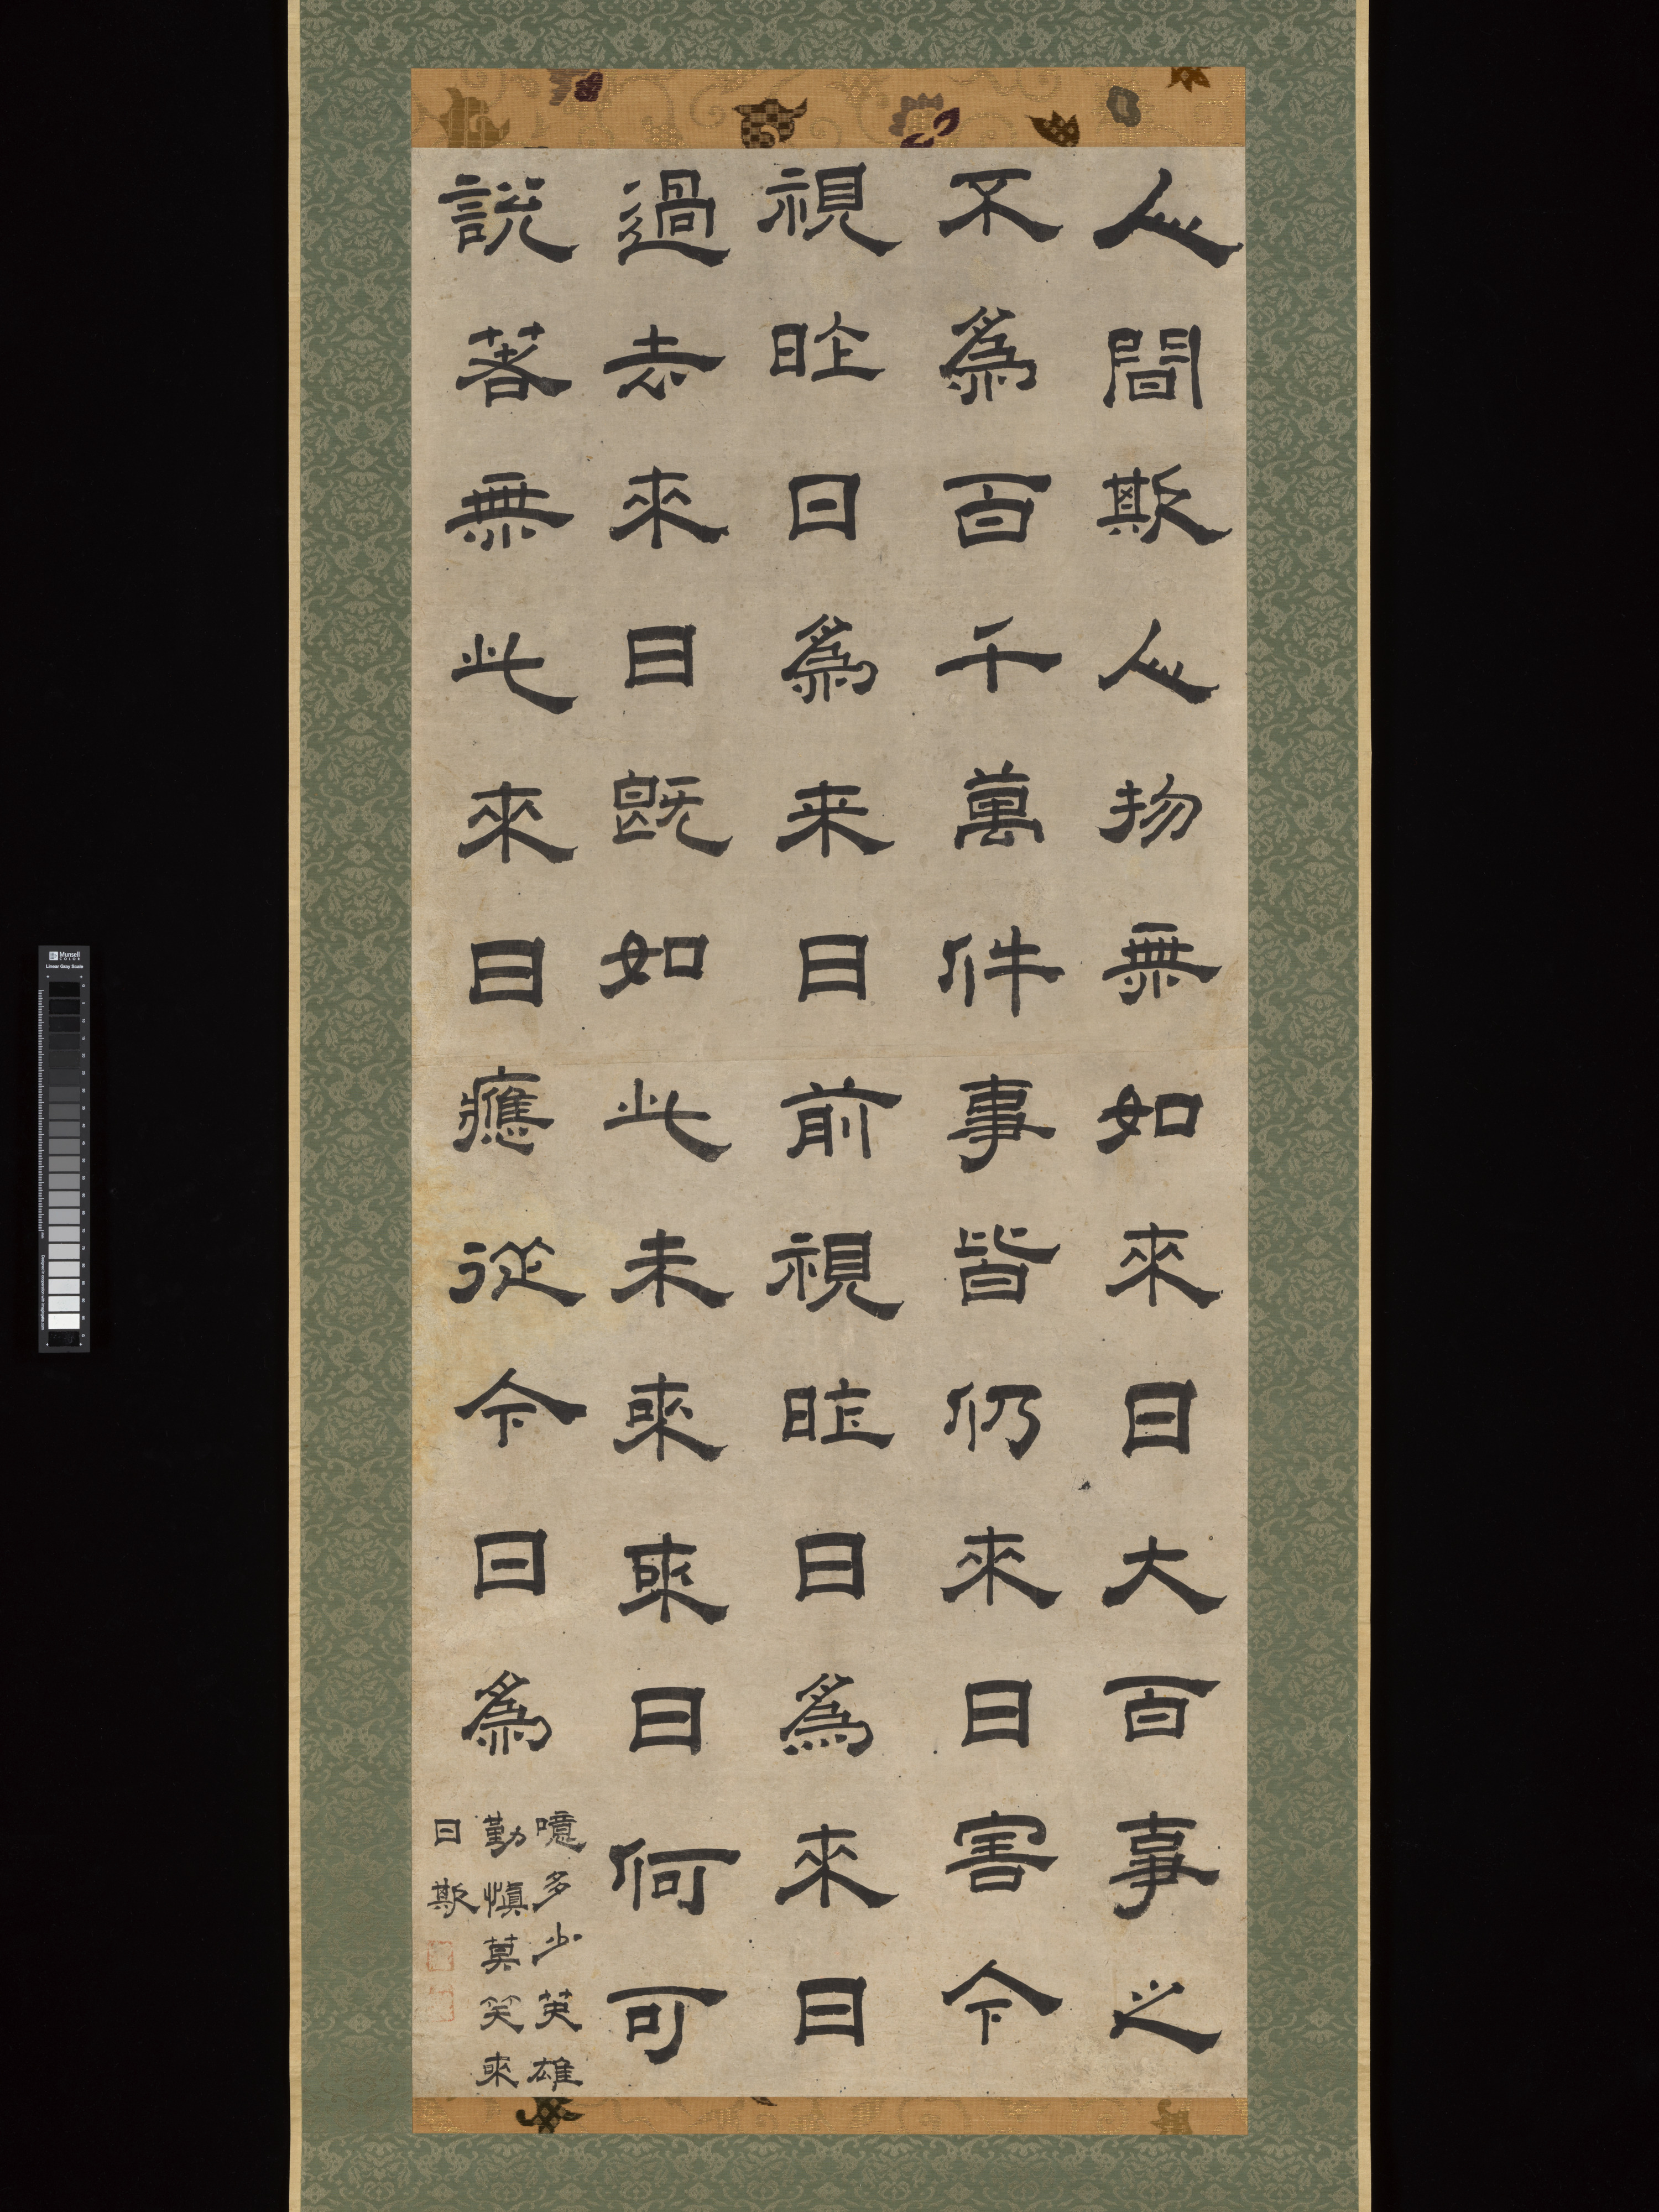 人間斯人物無如來日大百事之
不爲百千萬件事皆仍來日害今
視昨日爲来日前視昨日爲來日
過去來日既如此未來來日何可
說著無此來日應從今日爲
噫多少英雄
勤愼莫笑來
日斯
Munsell
COLOR
Linear Gray Scale